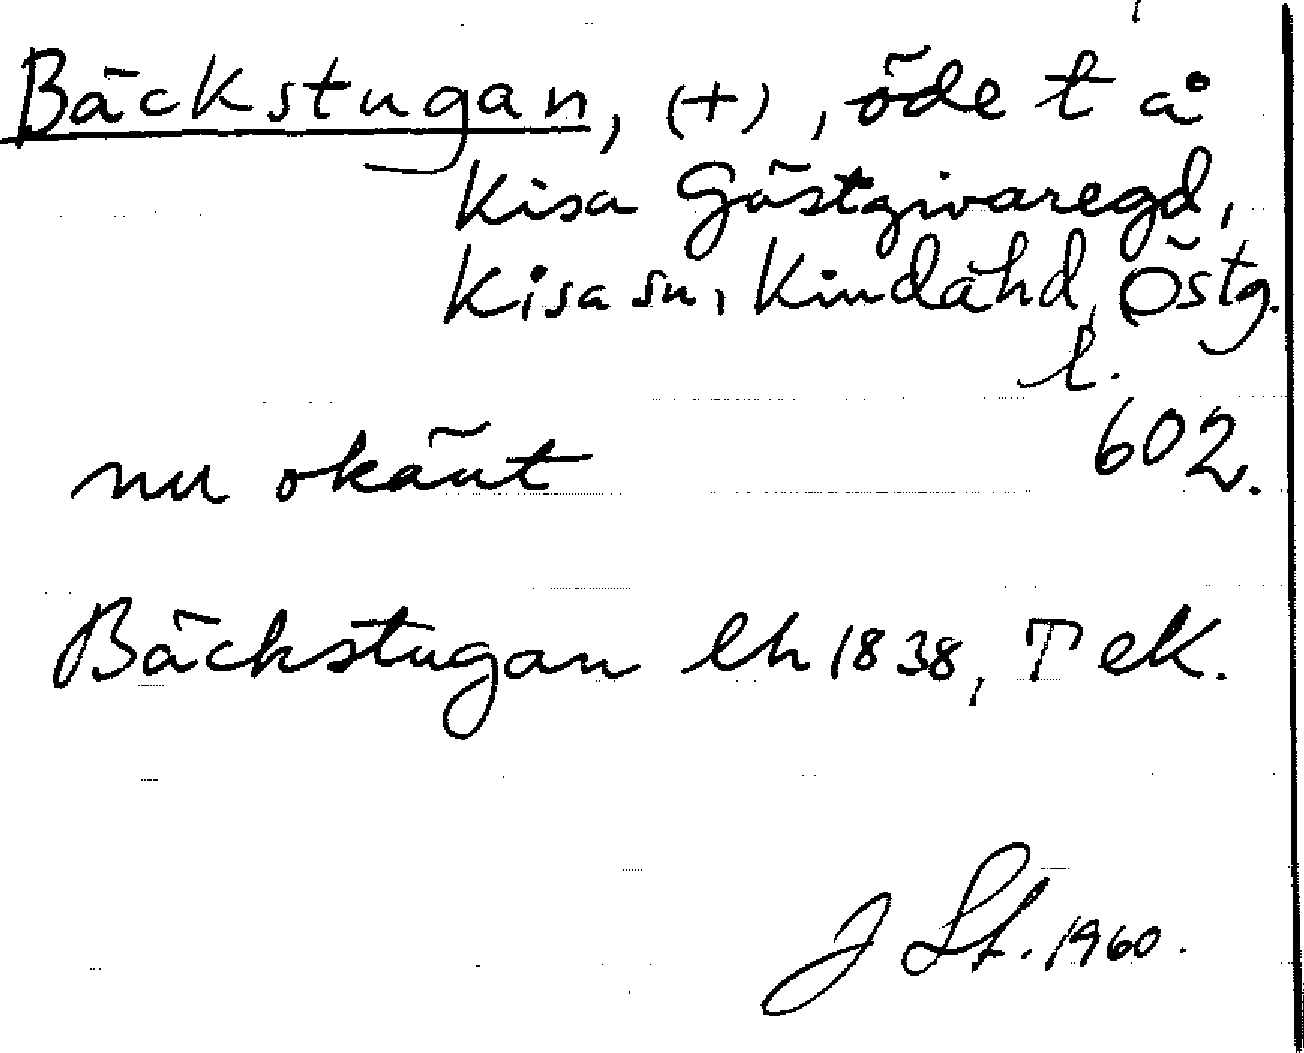 Bäckstugan, (+), öde t å
Kisa Gästgivaregd,
Kisa sn, Kinda hd, Östg.
l.
602.
nu okänt
Bäckstugan lh 1838, T eK.